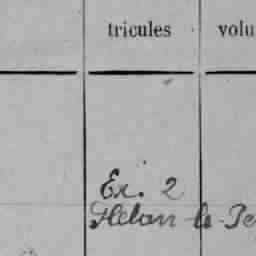 tricules volu
Ex. 2
Hélan le Pe